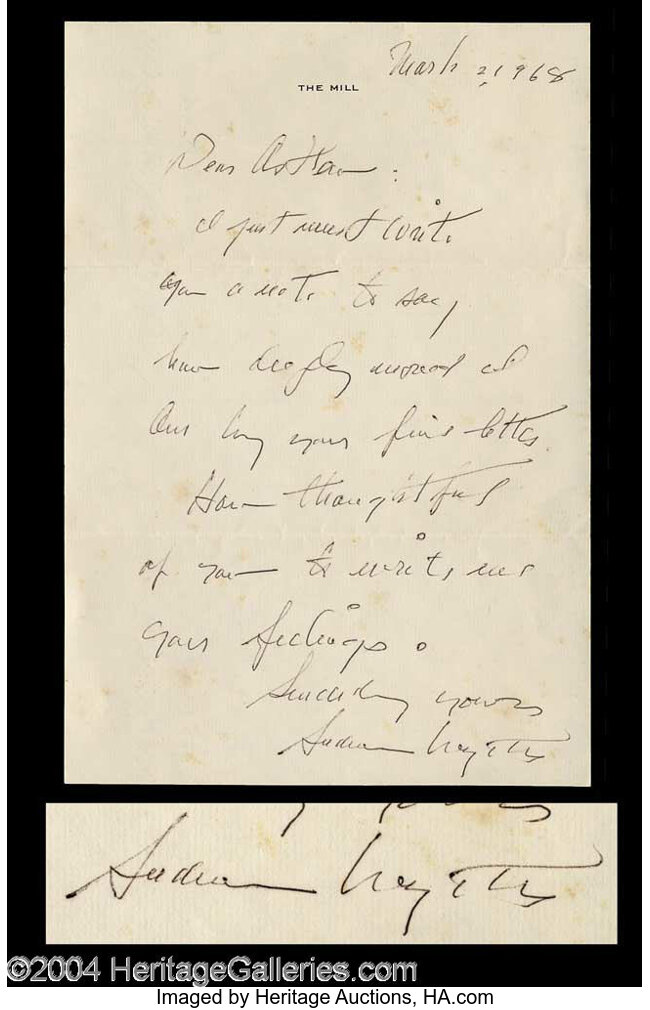 March 2, 1968
THE MILL
Dear Arthur :
I just must write
you a note to say
how deeply moved I
am by your fine letter.
How thoughtful
of you to write me
your feelings.
Sincerely yours
Andrew Wyeth
Andrew Wyeth
©2004 HeritageGalleries.com
Imaged by Heritage Auctions, HA.com